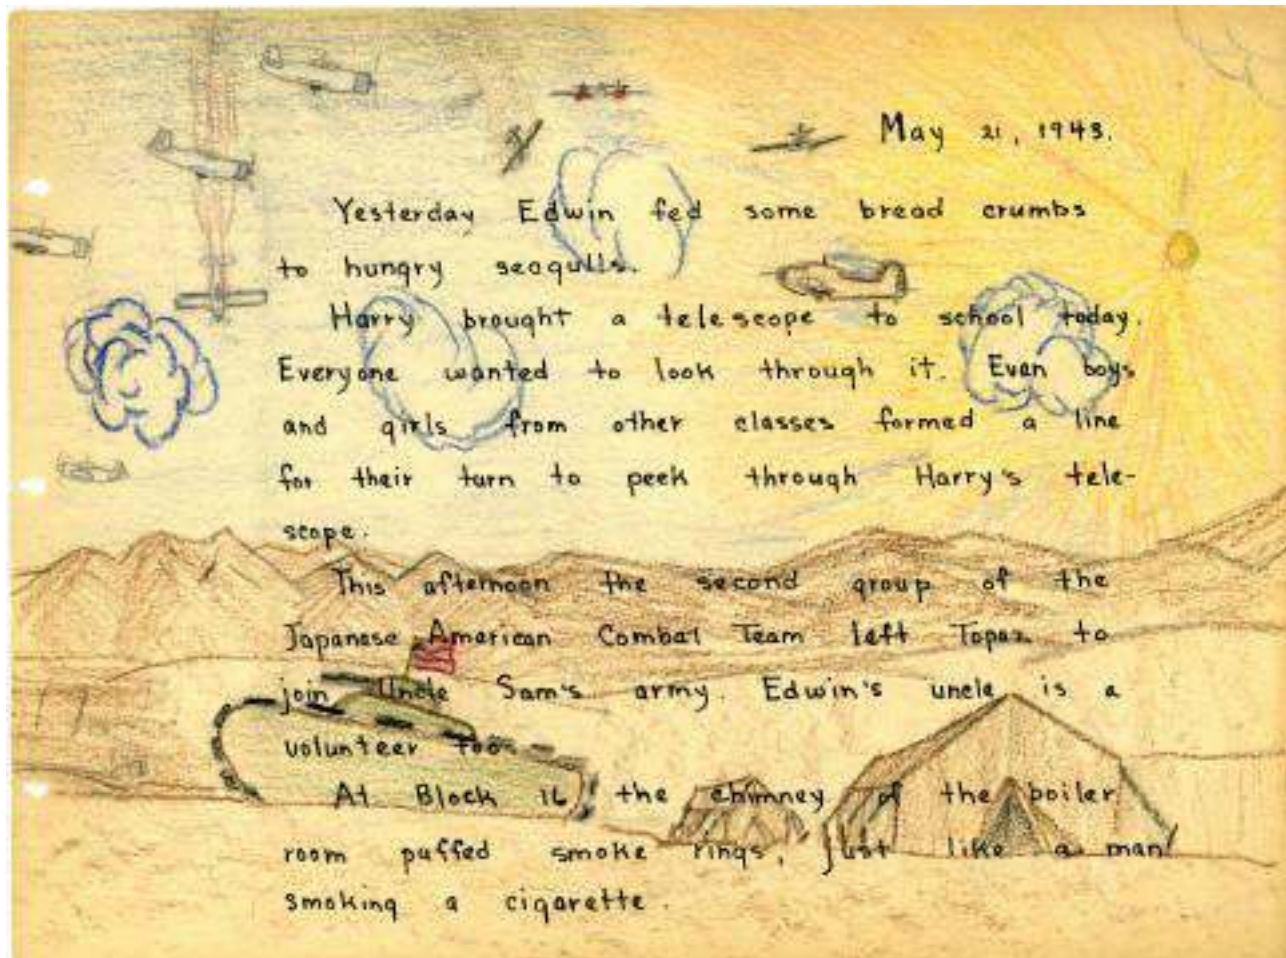 May 21, 1943.
Yesterday Edwin fed some bread crumbs
to hungry seagulls.
Harry brought a telescope to school today.
Everyone wanted to look through it. Even boys
and girls from other classes formed a line
for their turn to peek through Harry's tele-
scope.
This afternoon the second group of the
Japanese American Combat Team left Topaz to
join Uncle Sam's army. Edwin's uncle is a
volunteer too.
At Block 16 the chimney of the boiler
room puffed smoke rings, just like a man
smoking a cigarette.